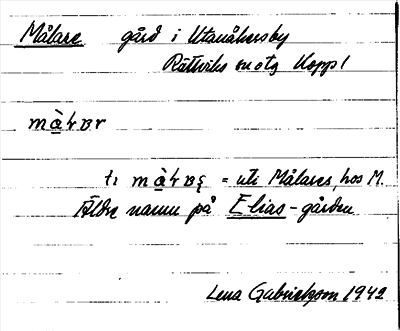 Målare gård i Utanåkersby
Rättviks sn otg Kopp l
mà̱ɫɐr
ti mà̱ɫɐş = uti Målares, hos M.
Äldre namn på Elias-gården
Lena Gabrielsson 1942